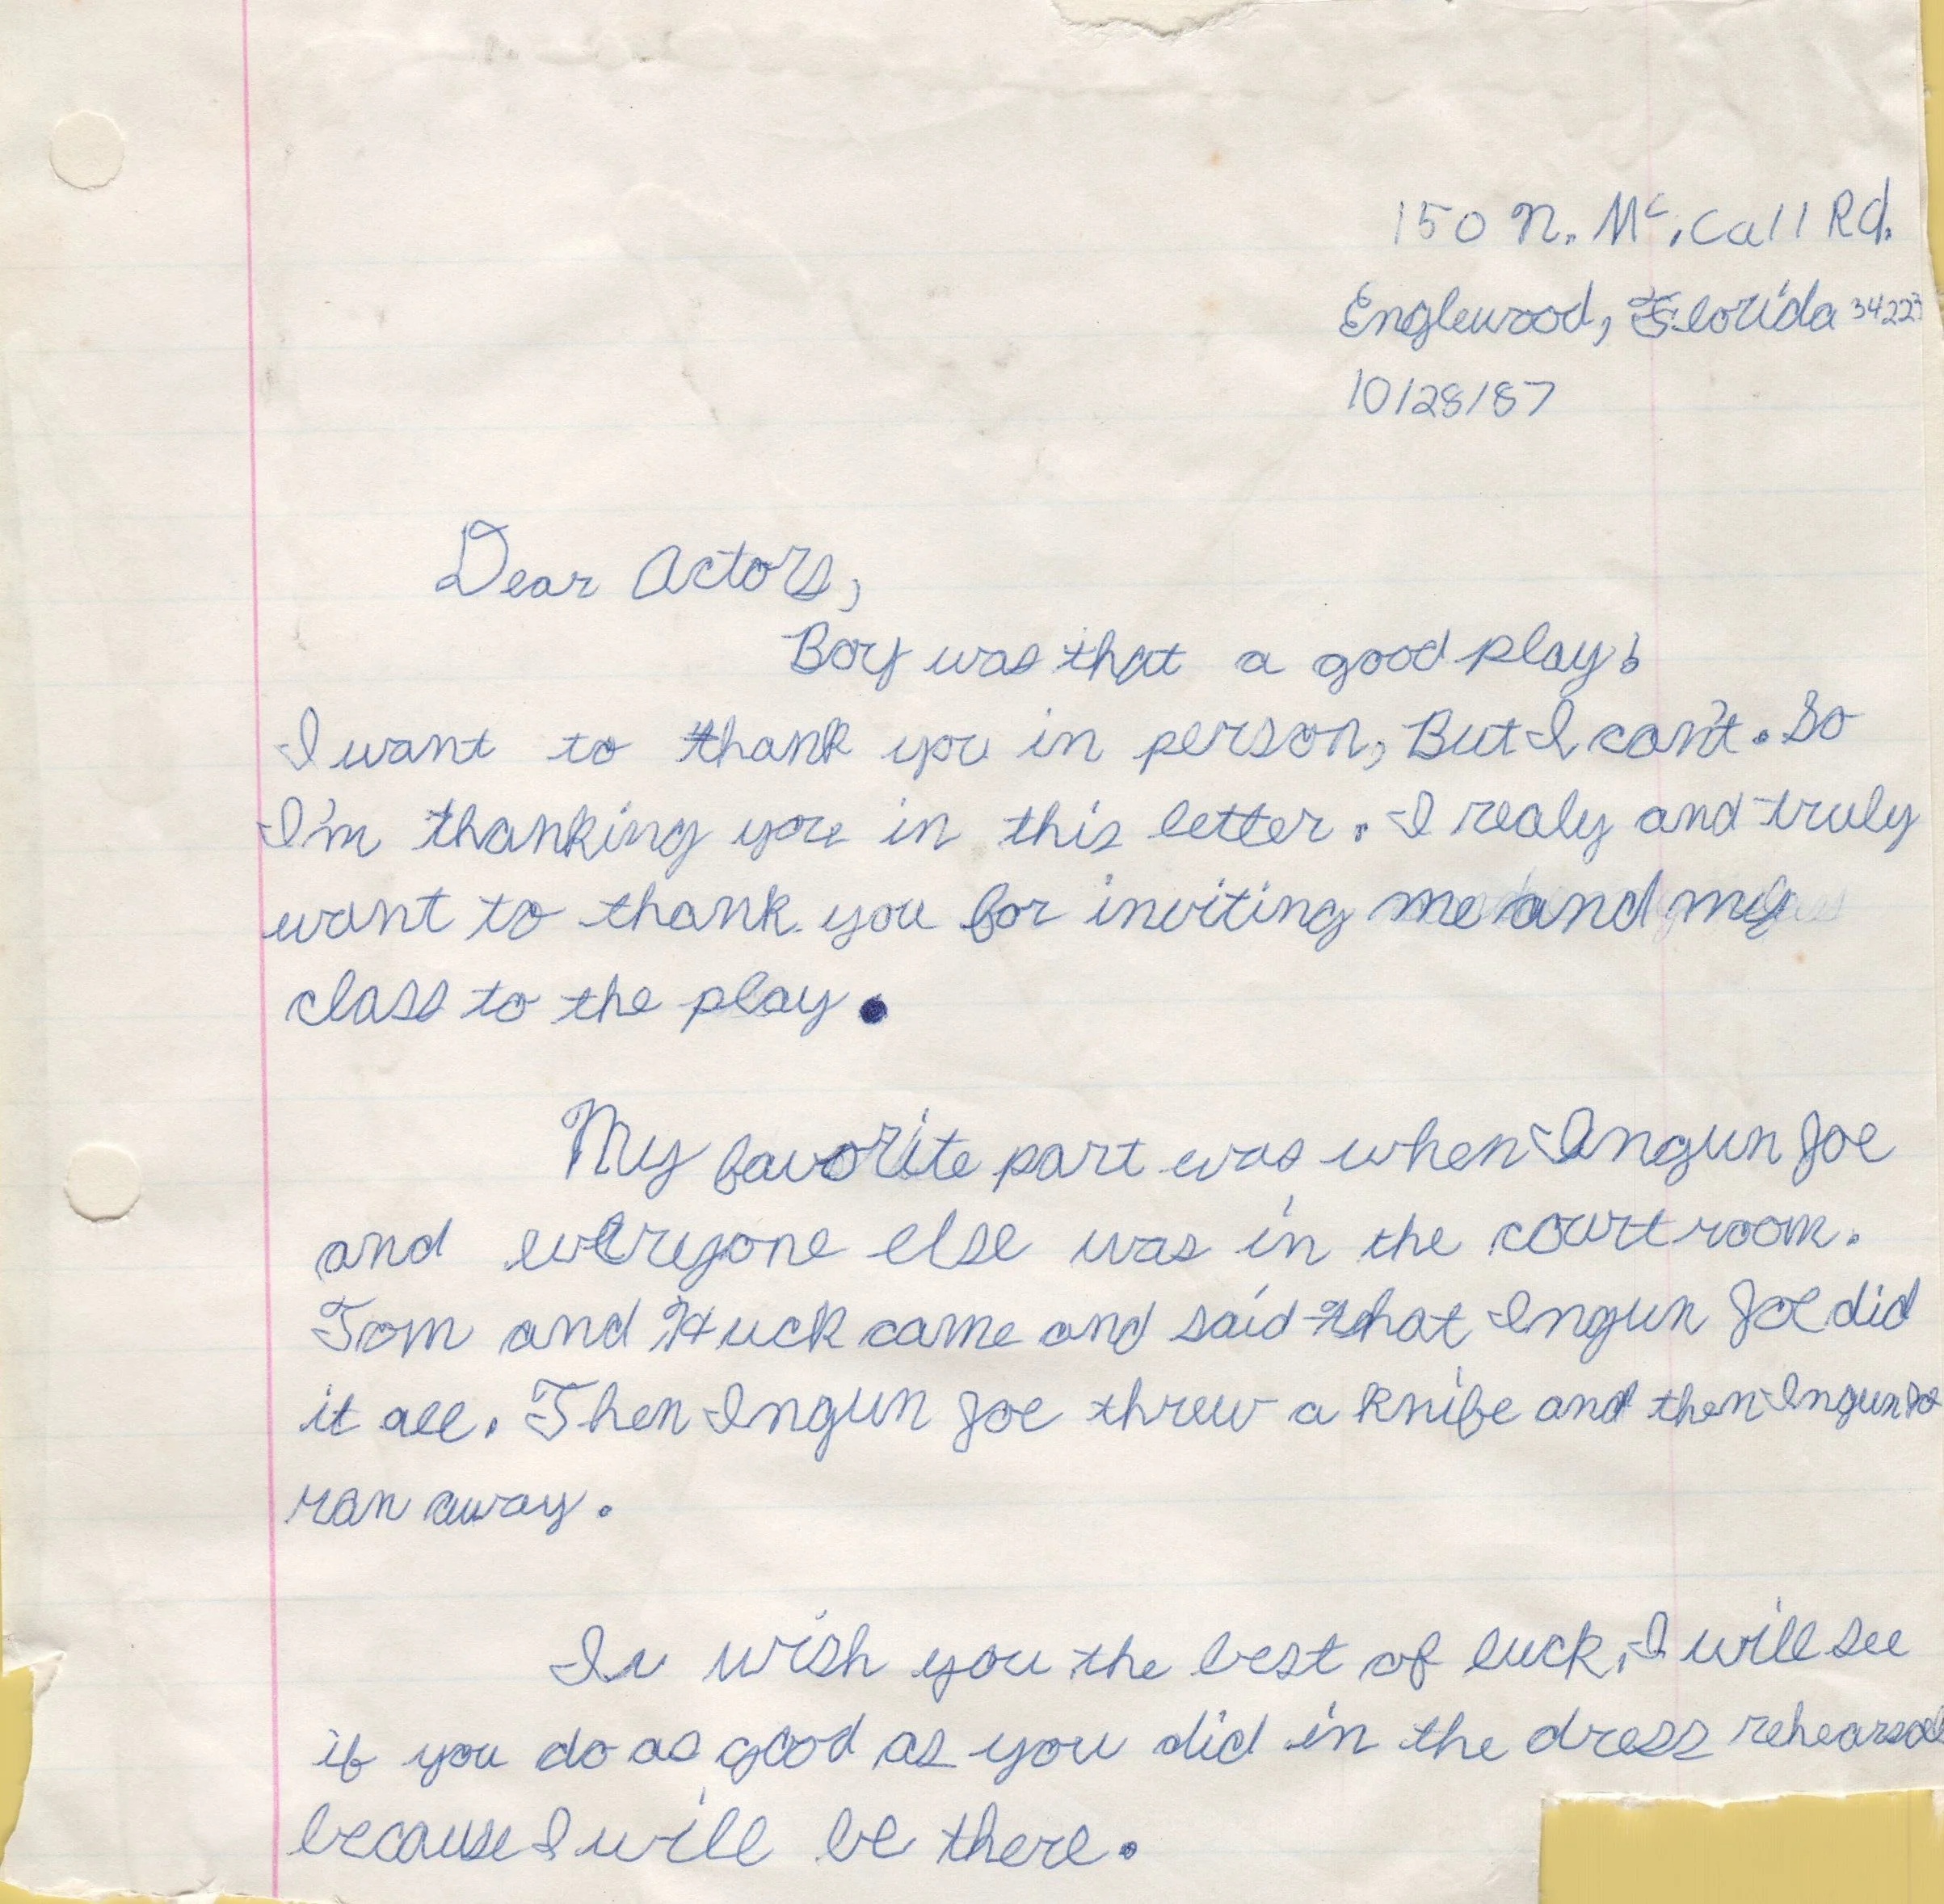 150 N. Mc. Call Rd.
Englewood, Florida 34223
10/28/87
Dear Actors,
Boy was that a good play!
I want to thank you in person, But I can't. So
I'm thanking you in this letter. I realy and truly
want to thank you for inviting me and my
class to the play.
My favorite part was when Ingun Joe
and everyone else was in the court room.
Tom and Huck came and said that Ingun Joe did
it all. Then Ingun Joe threw a knife and then Ingun Jo
ran away.
I wish you the best of luck, I will see
if you do as good as you did in the dress rehearsal
because I will be there.